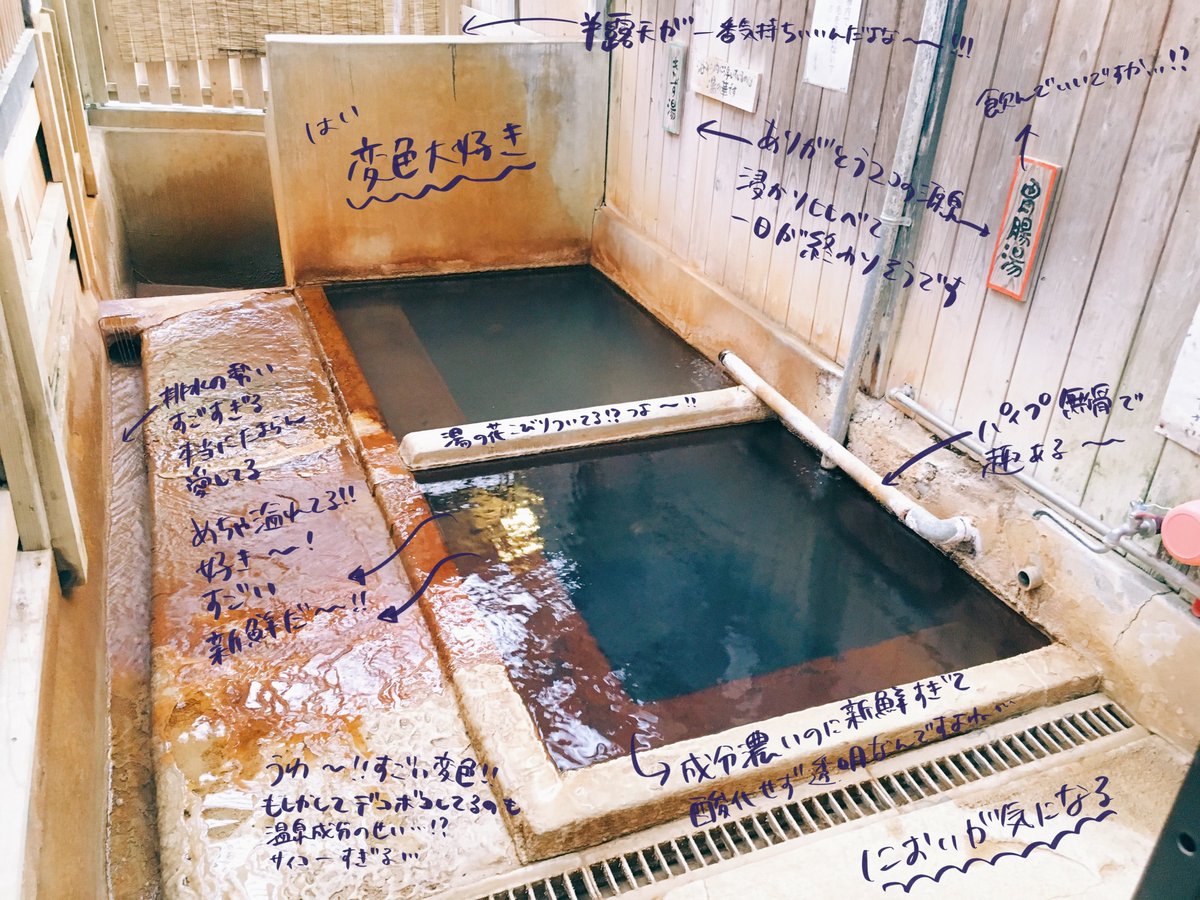 半露天が一番気持ちいいんだよな〜!!!
きず湯
飲んでいいですか…!?
はい
変色大好き
ありがとう2つの源泉
浸かりくらべて
一日が終わりそうです
胃腸湯
排水の勢い
すごすぎる
本当にたまらん
愛してる
湯の花こびりついてる!?つよ〜!!
パイプ無骨で
趣ある〜
めちゃ溢れてる!!
好き〜!
すごい
新鮮だ〜!!
成分濃いのに新鮮すぎて
酸化せず透明なんですよね…
うわ〜!!すごい変色!!
もしかしてデコボコしてるのも
温泉成分のせい…!?
サイコーすぎる…
においが気になる